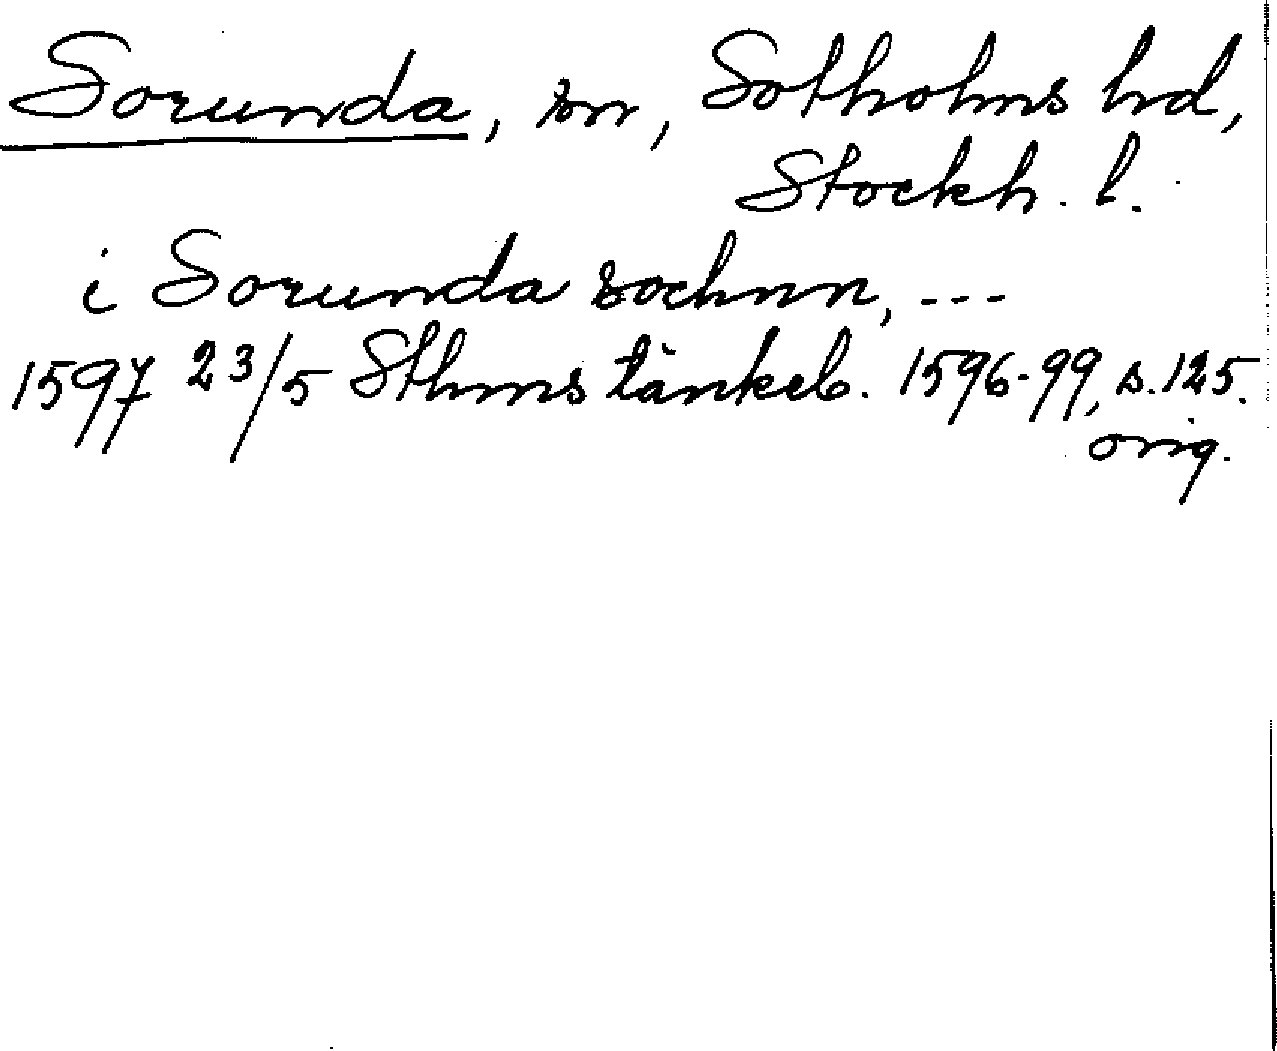 Sorunda, sn, Sotholms hd,
Stockh. l.
i Sorunda sochnn, ---
1597 23/5 Sthms tänkeb. 1596-99, s. 125.
orig.